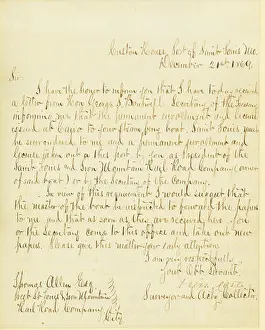 Custom House, Port of Saint Louis Mo.
December 21st 1869.
Sir
I have the honor to inform you that I have to day received
a letter from Hon George S. Boutwell Secretary of the Treasury
informing me that the permanent enrolment and license
issued at Cairo to your steam ferry boat Saint Louis must
be surrendered to me and a permanent enrolment and
license taken out at this port by you as President of the
Saint Louis & Iron Mountain Rail Road Company (owner
of said boat) or by the Secretary of the Company.
In view of this requirement I would suggest that
the master of the boat be instructed to forward the papers
to me and that as soon as they are received here you
or the Secretary come to this office and take out new
papers. Please give this matter your early attention.
I am very respectfully
Your Obt Servant
Surveyor and Actg Collector.
Thomas Allen Esq
Prest St Louis & Iron Mountain
Rail Road Company
City